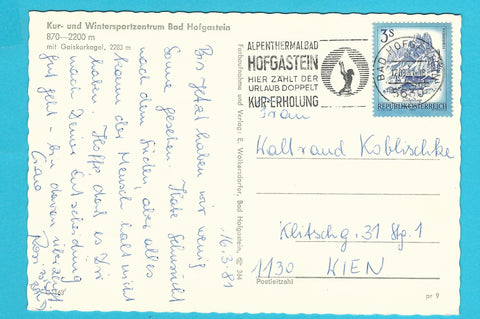 Kur- und Wintersportzentrum Bad Hofgastein
870—2200 m
mit Gaiskarkogel, 2283 m
16.3.81
Bis jetzt haben wir wenig
Sonne gesehen. Habe Sehnsucht
nach dem Süden, aber alles
kann der Mensch halt nicht
haben. Hoffe, dass es Dir
nach Deiner Entscheidung
gut geht - bin davon überzeugt
Ciao
Farbaufnahme und Verlag: E. Wolkersdorfer, Bad Hofgastein, 364
ALPENTHERMALBAD
HOFGASTEIN
HIER ZÄHLT DER
URLAUB DOPPELT
KUR-ERHOLUNG
BAD HOFGASTEIN
5630
3S
REPUBLIK ÖSTERREICH
Frau
Waltraud Koblischke
Klitschg. 31 Stg. 1
1130 WIEN
Postleitzahl
pr 9